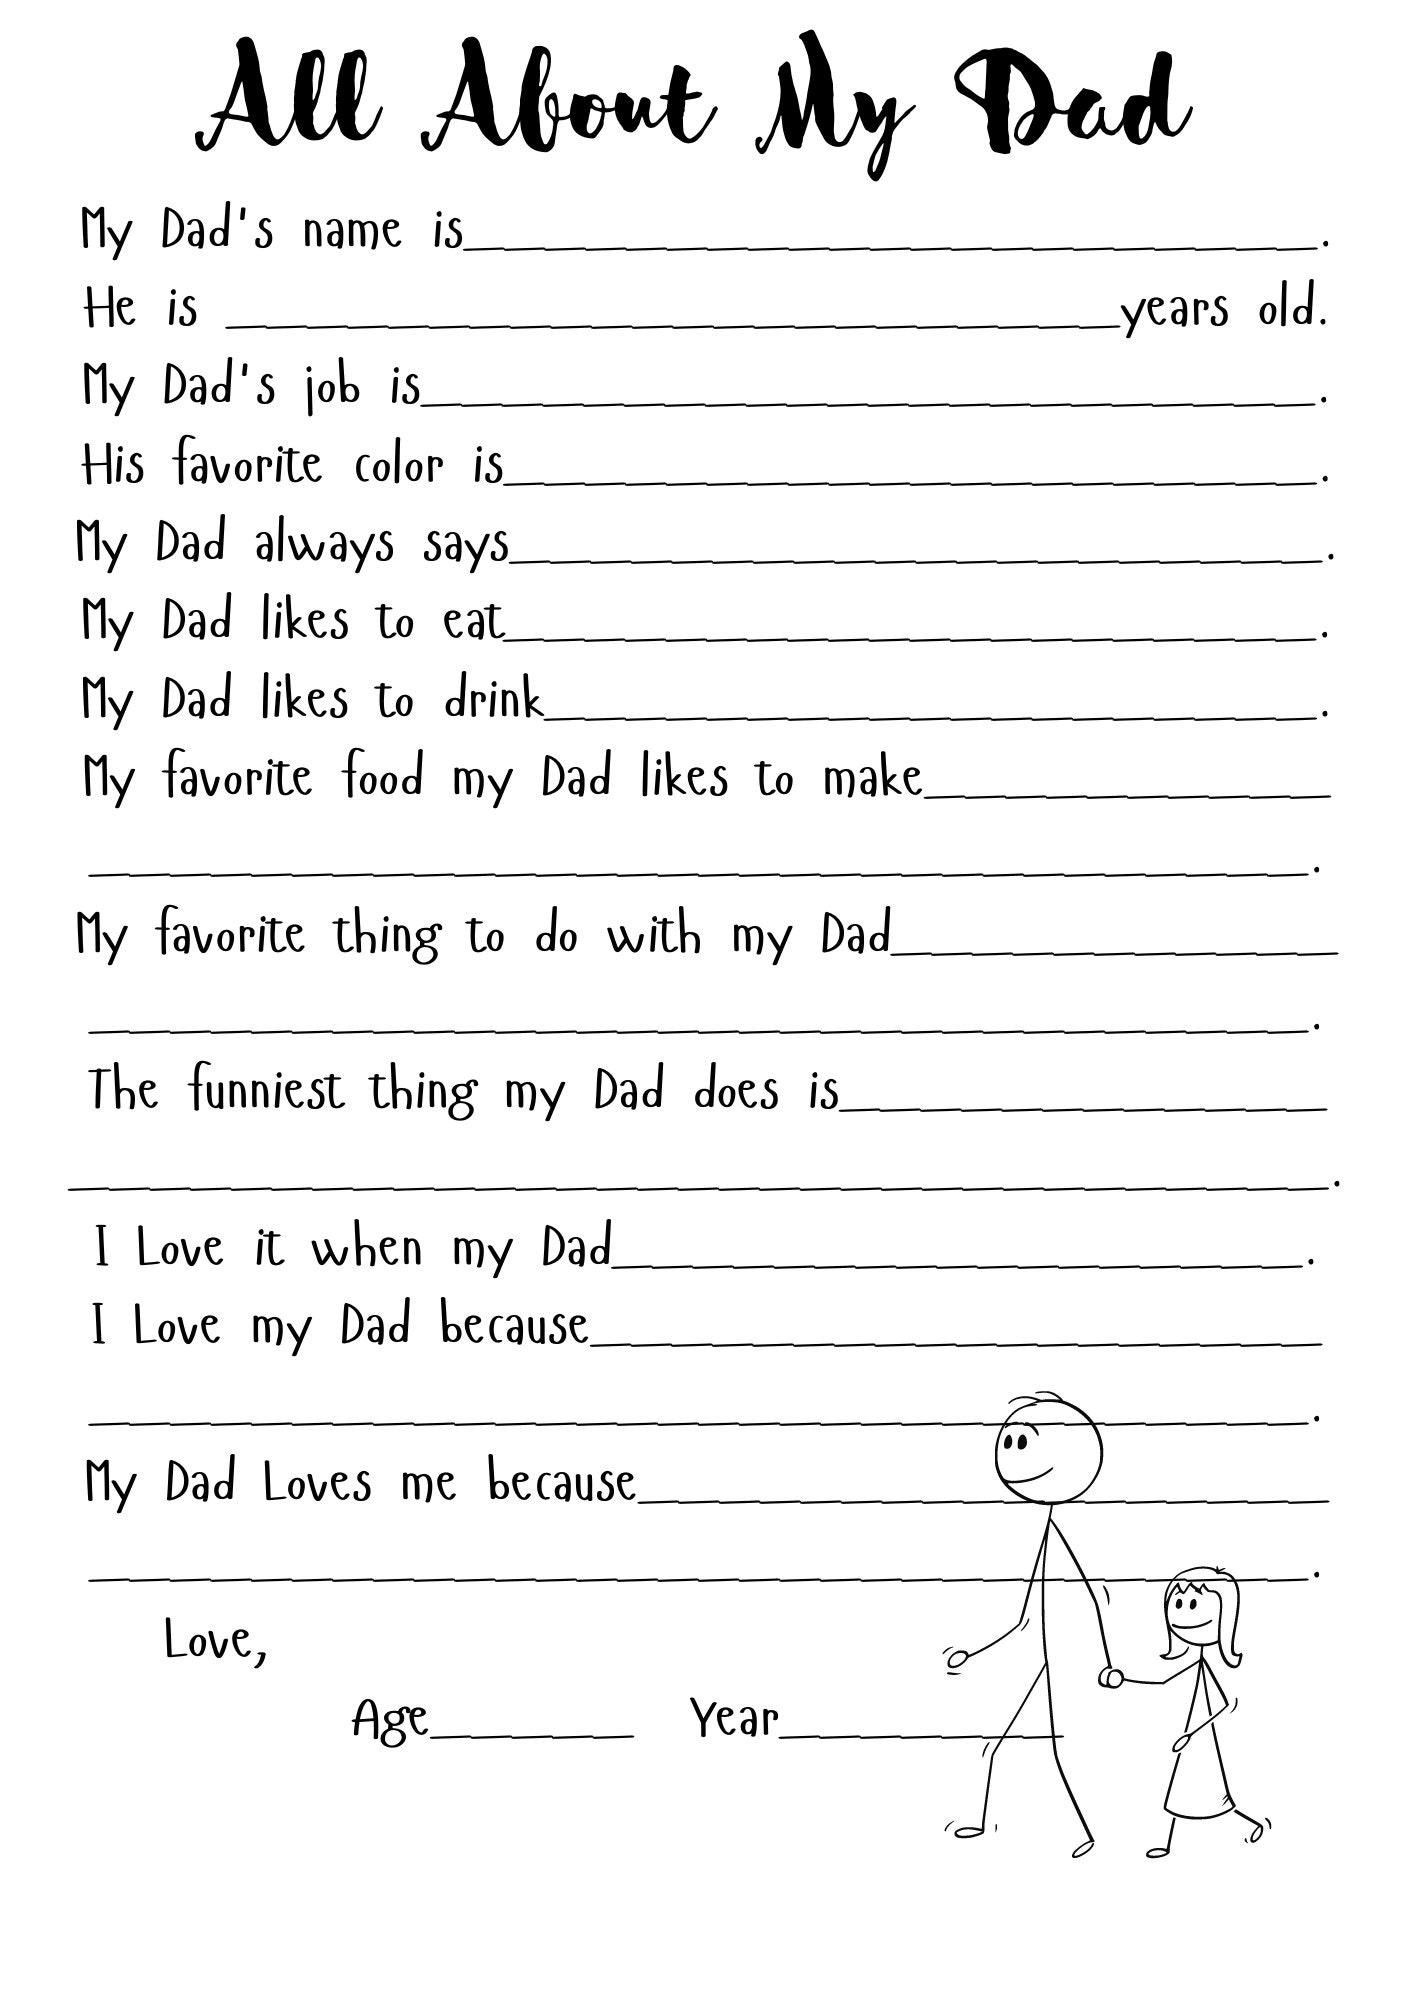 All About My Dad
My Dad's name is_____________________.
He is ______________________years old.
My Dad's job is______________________.
His favorite color is____________________.
My Dad always says____________________.
My Dad likes to eat____________________.
My Dad likes to drink___________________.
My favorite food my Dad likes to make__________
______________________________.
My favorite thing to do with my Dad___________
______________________________.
The funniest thing my Dad does is____________
_______________________________.
I Love it when my Dad_________________.
I Love my Dad because__________________
______________________________.
My Dad Loves me because_________________
______________________________.
Love,
Age_____ Year_______